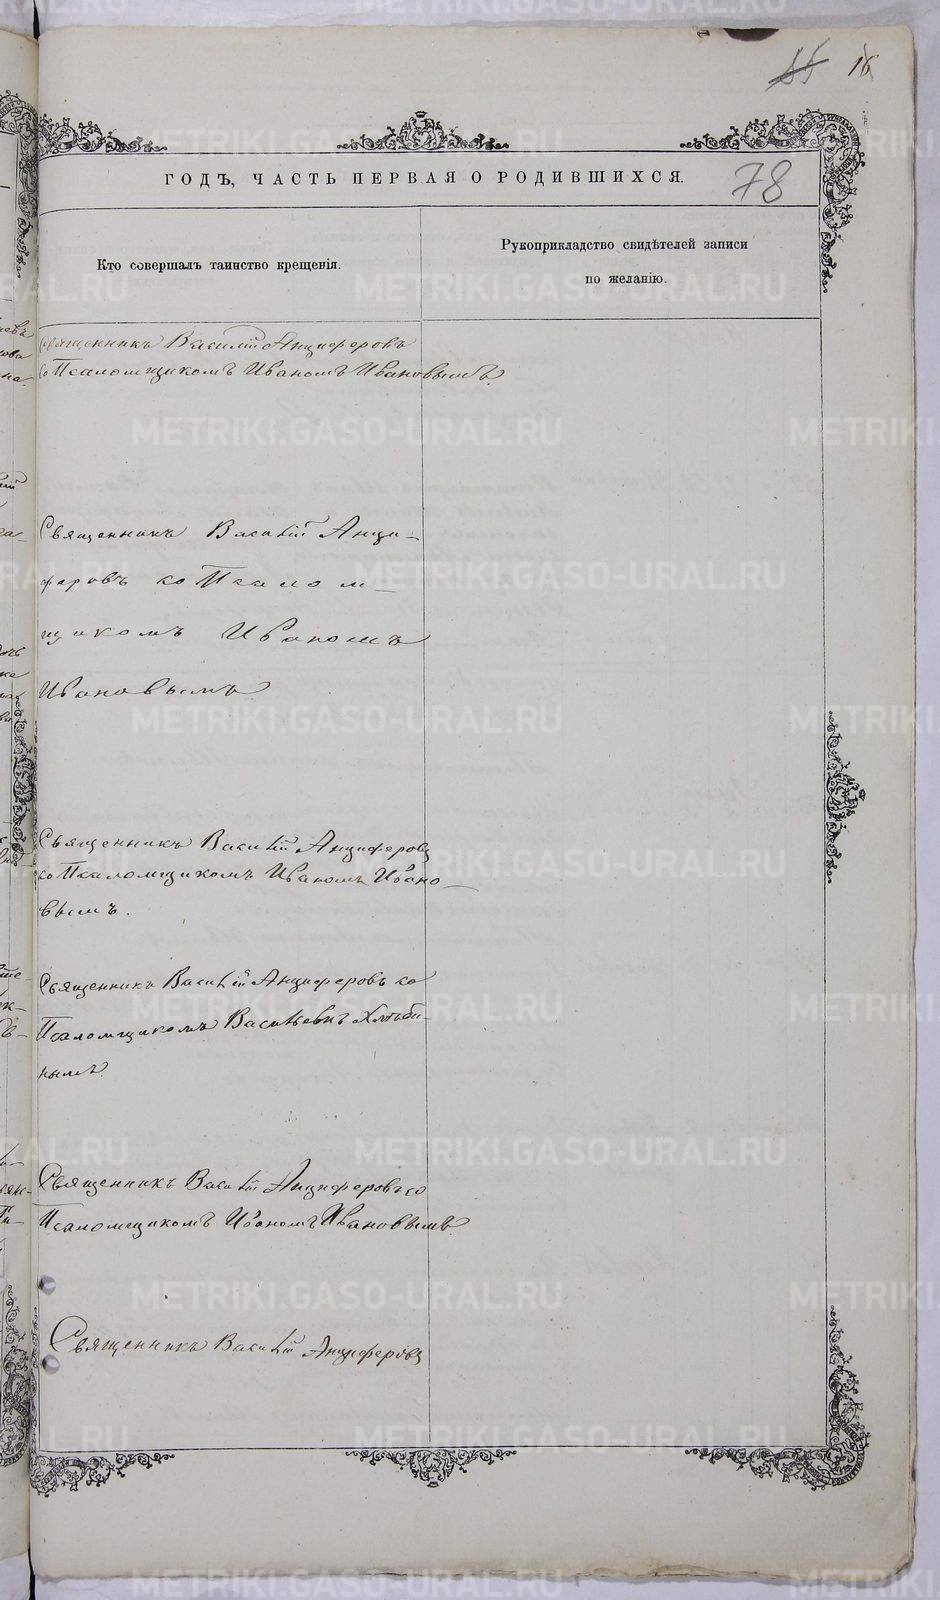 16
ГОДЪ, ЧАСТЬ ПЕРВАЯ О РОДИВШИХСЯ.
78
Кто совершалъ таинство крещенія.
Рукоприкладство свидѣтелей записи
по желанію.
Священникъ Василій Анциферовъ
со Псаломщикомъ Иваномъ Ивановымъ.
Священникъ Василій Анци-
феровъ со Псалом-
щикомъ Иваномъ
Ивановымъ
Священникъ Василій Анциферовъ
со Псаломщикомъ Иваномъ Ивано-
вымъ.
Священникъ Василій Анциферовъ со
Псаломщикомъ Хлѣби-
нымъ.
Священникъ Василій Анциферовъ со
Псаломщикомъ Иваномъ Ивановымъ.
Священникъ Василій Анциферовъ
METRIKI.GASO-URAL.RU